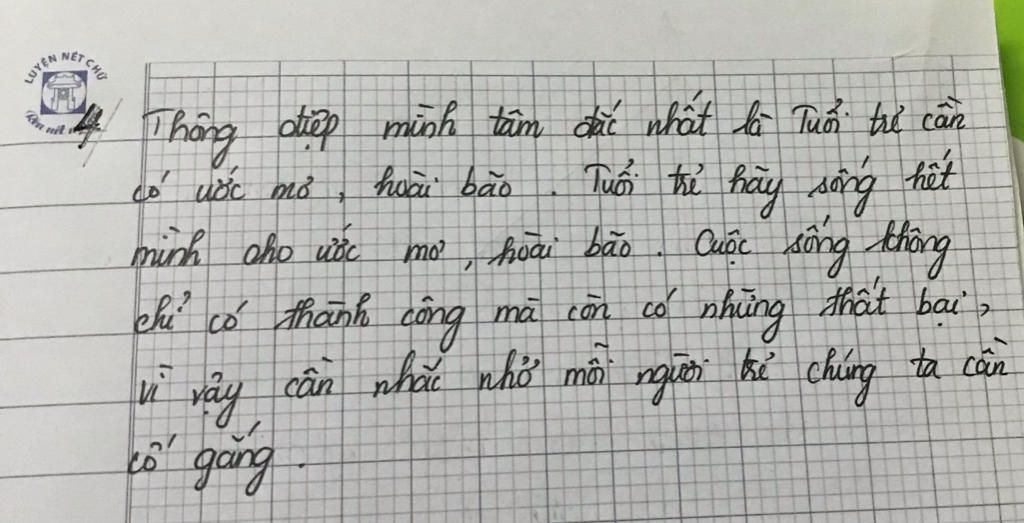 LUYỆN NÉT CHỮ
4 Thông điệp mình tâm đắc nhất là Tuổi trẻ cần
có ước mơ, hoài bão. Tuổi trẻ hãy sống hết
mình cho ước mơ, hoài bão. Cuộc sống không
chỉ có thành công mà còn có những thất bại,
vì vậy cần nhắc nhở mỗi người trẻ chúng ta cần
cố gắng.